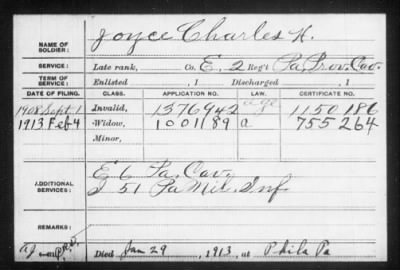 NAME OF SOLDIER: Joyce Charles H.
SERVICE: Late rank, Co. E, 2 Reg't Pa. Prov. Cav.
TERM OF SERVICE: Enlisted , 1 Discharged , 1
DATE OF FILING. CLASS. APPLICATION NO. LAW. CERTIFICATE NO.
1908 Sept 1 Invalid, 1376942 age 1150186
1913 Feb 4 Widow, 1001189 a 755264
Minor,
ADDITIONAL SERVICES: E 6 Pa. Cav.
I 51 Pa Mil. Inf
REMARKS:
Died Jan 29, 1913, at Phila Pa